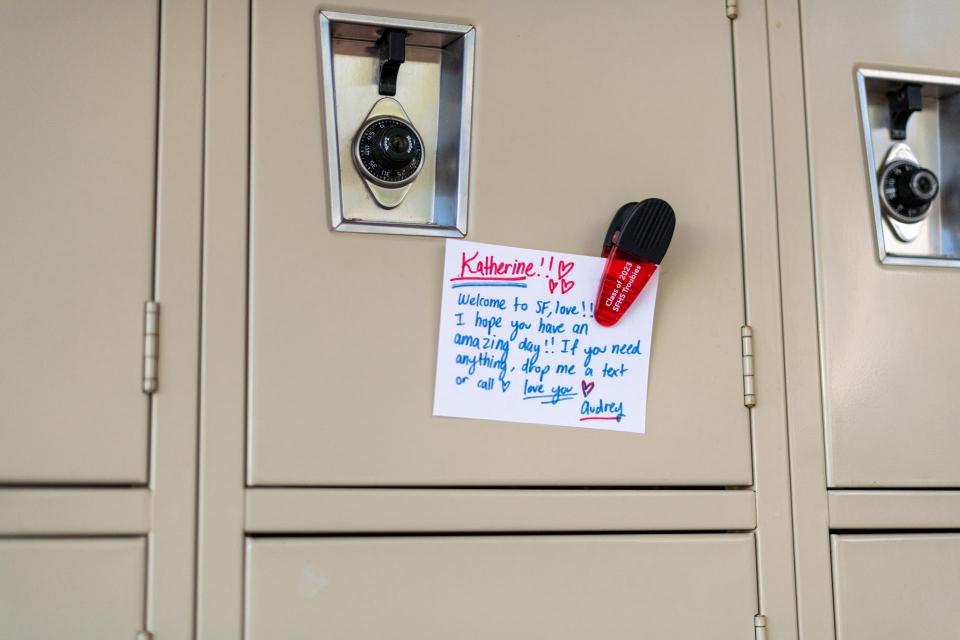 Katherine!!
Welcome to SF, love!!
I hope you have an
amazing day!! If you need
anything, drop me a text
or call love you
Audrey
Class of 2023
SFHS Troubies